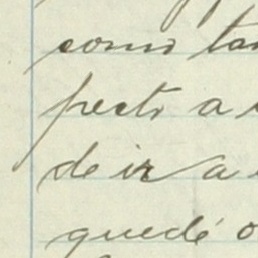 como tan
pecto a
de ir a
quedé o